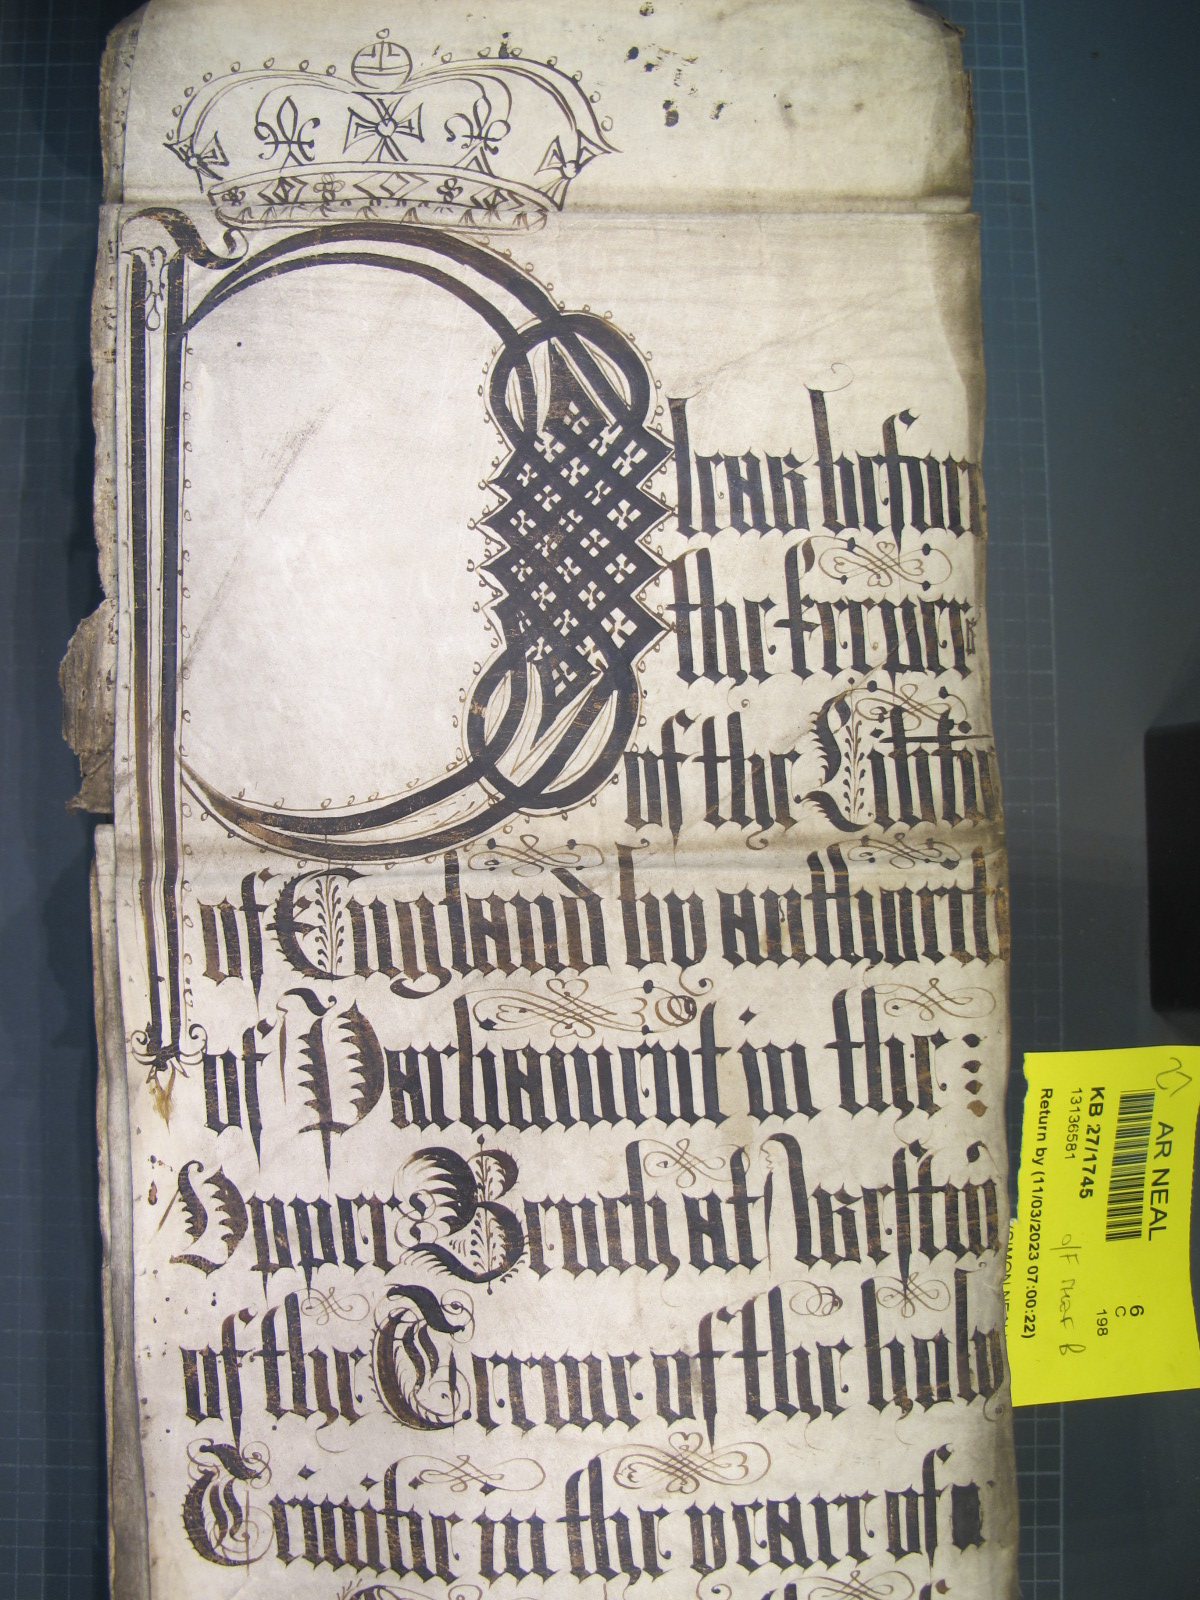 Pleas before
the keeper
of the Libtie
of England by authorit
of Parliament in the :
Upper Bench at Westm
of the Terme of the holy
Trinitie in the yeare of
AR NEAL
KB 27/1745
13136581
Return by (11/03/2023 07:00:22)
6
C
198